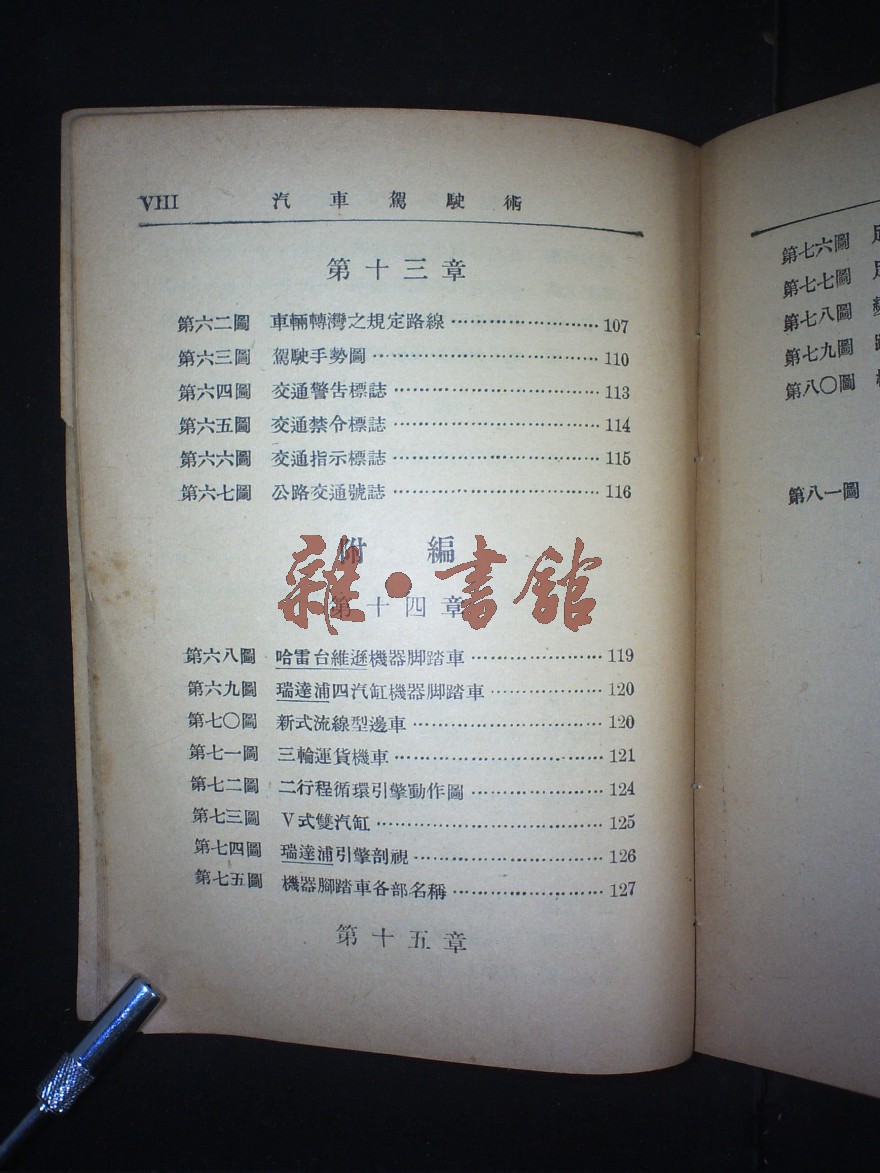 VIII 汽車駕駛術
第十三章
第六二圖 車輛轉灣之規定路線……………………107
第六三圖 駕駛手勢圖……………………110
第六四圖 交通警告標誌……………………113
第六五圖 交通禁令標誌……………………114
第六六圖 交通指示標誌……………………115
第六七圖 公路交通號誌……………………116
附編
第十四章
雜·書館
第六八圖 哈雷台維遜機器脚踏車……………………119
第六九圖 瑞達浦四汽缸機器脚踏車……………………120
第七〇圖 新式流線型邊車……………………120
第七一圖 三輪運貨機車……………………121
第七二圖 二行程循環引擎動作圖……………………124
第七三圖 V式雙汽缸……………………125
第七四圖 瑞達浦引擎剖視……………………126
第七五圖 機器脚踏車各部名稱……………………127
第十五章
第七六圖
第七七圖
第七八圖
第七九圖
第八〇圖
第八一圖